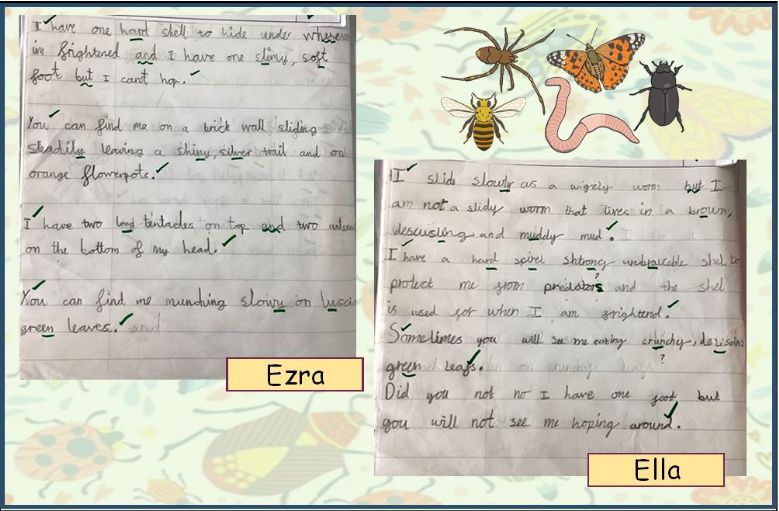 I have one hard shell to hide under
im frightened and I have one slimy, soft
foot but I cant hop.
You can find me on a brick wall sliding
steadily leaving a shiny, silver trail and on
orange flowerpots.
I have two long tentacles on top and two
on the bottom of my head.
You can find me munching slowy on
green leaves. and
Ezra
I slide slowly as a wigely worm but I
am not a slidy worm that lives in a brown,
descusting and muddy mud.
I have a hard spirel shtrong unbraceble shel to
protect me from predators and the shel
is used for when I am frightend.
?
Sometimes you will see me eating crunchy,
green leafs.
?
Did you not no I have one foot but
you will not see me hoping around.
Ella